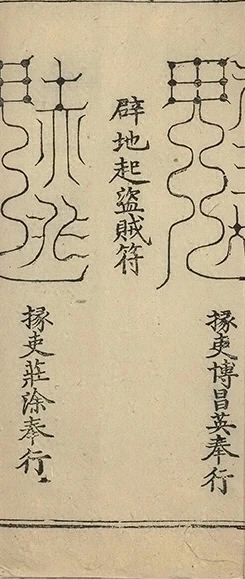 掾吏博昌英奉行
辟地起盜賊符
掾吏莊除奉行